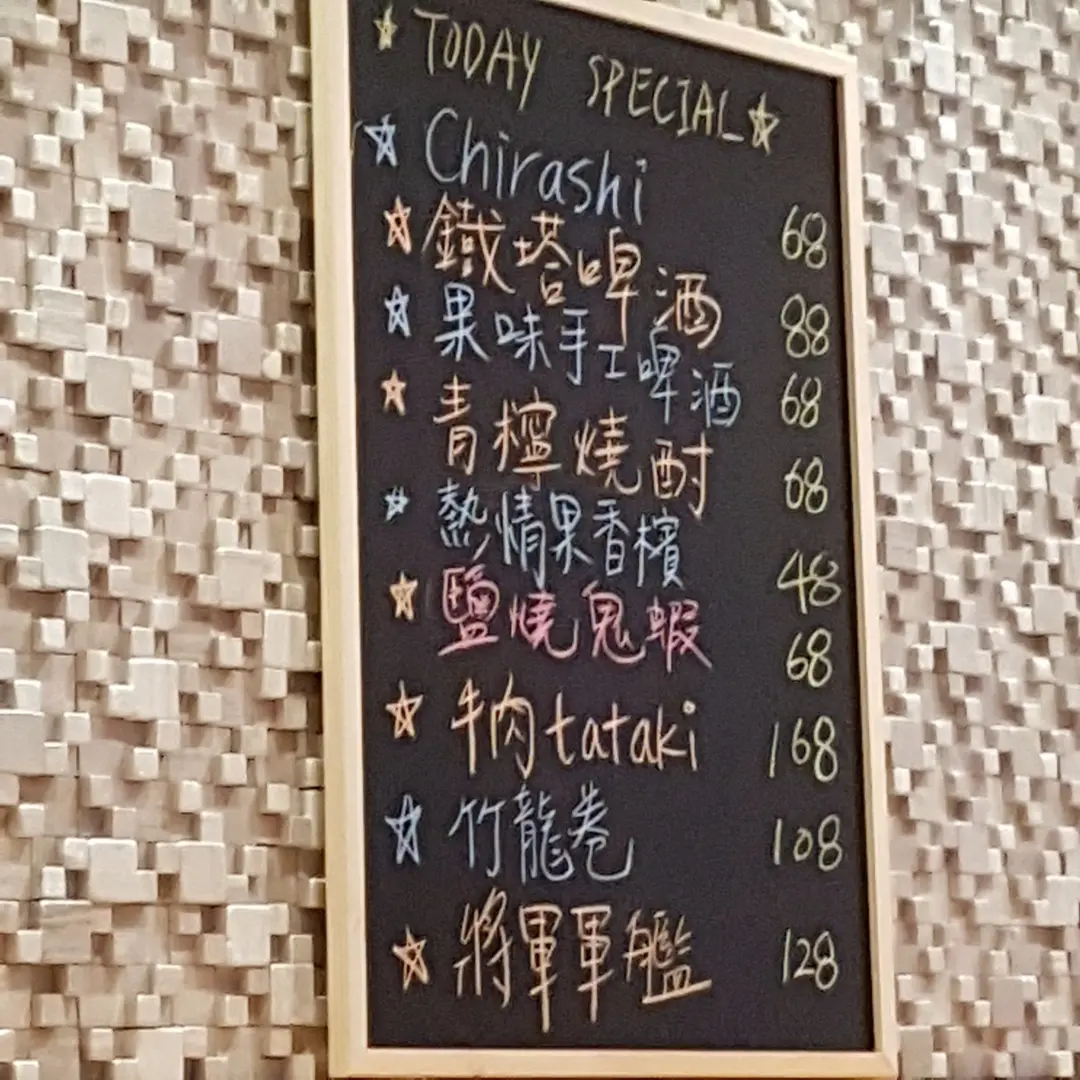 ☆ TODAY SPECIAL ☆
☆ Chirashi 68
☆ 鐵塔啤酒 88
☆ 果味手工啤酒 68
☆ 青檸燒酎 68
☆ 熱情果香檳 48
☆ 鹽燒鬼蝦 68
☆ 牛肉tataki 168
☆ 竹龍卷 108
☆ 將軍軍艦 128